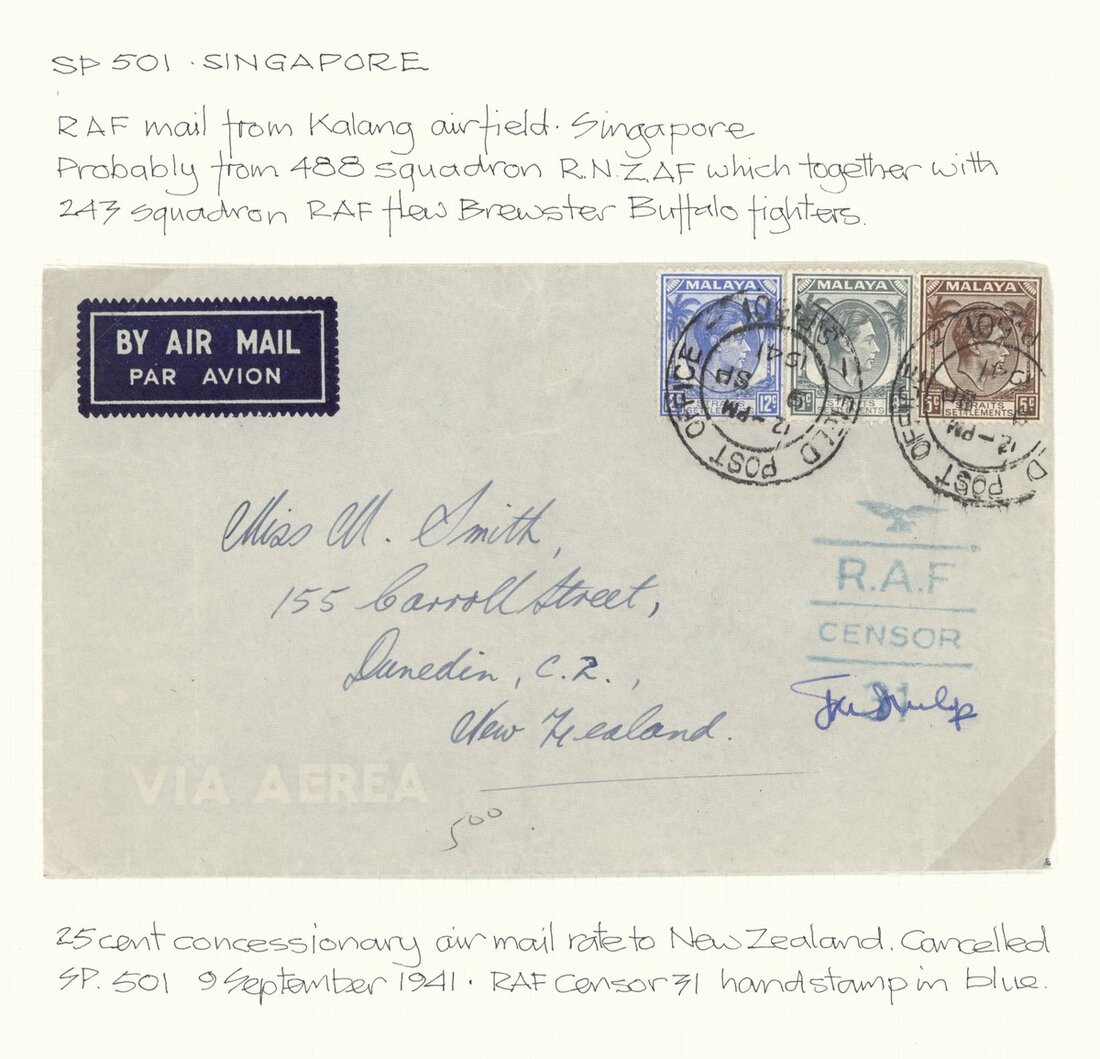 SP 501 · SINGAPORE
RAF mail from Kalang airfield. Singapore
Probably from 488 squadron R.N.Z.A.F which together with
243 squadron RAF flew Brewster Buffalo fighters.
BY AIR MAIL
PAR AVION
MALAYA
12c
MALAYA
MALAYA
STRAITS
SETTLEMENTS
5c
FIELD POST OFFICE
SP.501
12-PM
9 SP
1941
FIELD POST OFFICE
SP.501
12-PM
9 SP
Miss M. Smith,
155 Carroll Street,
Dunedin, C.2.,
New Zealand.
R.A.F
CENSOR
31
VIA AEREA
500
25 cent concessionary air mail rate to New Zealand. Cancelled
SP. 501 9 September 1941. RAF Censor 31 handstamp in blue.